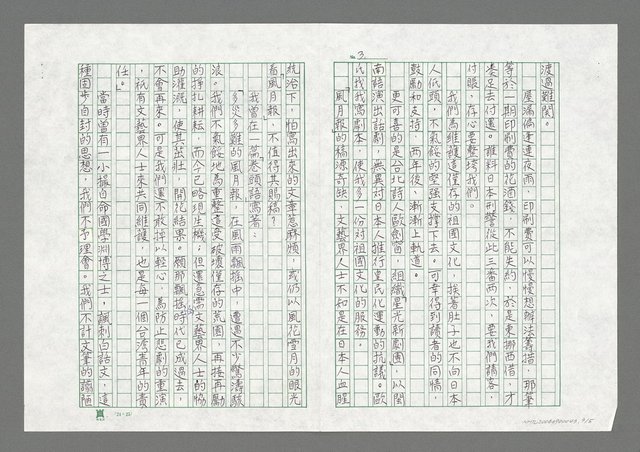 No 3
渡過難關。
屋漏偏逢連夜雨，印刷費可以慢慢想辦法籌措，那筆
等於一期印刷費的花酒錢，不能失約，於是東挪西借，才
湊足去付還。誰料日本刑警從此三番兩次，要我們請客，
付賬，存心要整垮我們。
我們為維護這僅存的祖國文化，挨著肚子也不向日本
人低頭，不氣餒的堅強支撐下去。可幸得到讀者的同情，
鼓勵和支持，兩年後，漸漸上軌道。
更可喜的是台北詩人歐劍窗，組織星光新劇團，以閩
南語演出話劇，無異對日本人推行皇民化運動的抗議。歐
氏找我寫劇本，使我多一份對祖國文化的服務。
風月報的稿源奇缺，文藝界人士不知是在日本人血腥
統治下，怕寫出來的文章惹麻煩，或仍以風花雪月的眼光
看風月報，不值得其賜稿？
我曾在一篇卷頭語寫著：
「多災多難的風月報，在風雨飄搖中，遭遇不少驚濤駭
浪。我們不氣餒地為重整這受破壞僅存的荒園，再接再勵
的掙扎耕耘，而今已略現生機；但還需文藝界人士的協
助灌溉，使其茁壯，開花結果。願那飄搖時代已成過去，
不會再來。可是我們還不敢掉以輕心，為防止悲劇的重演
，祇有文藝界人士來共同維護，也是每一個台灣青年的責
任。
當時曾有一小撮自命國學淵博之士，諷刺白話文，這
種固步自封的思想，我們不予理會。我們不計文筆的譾陋